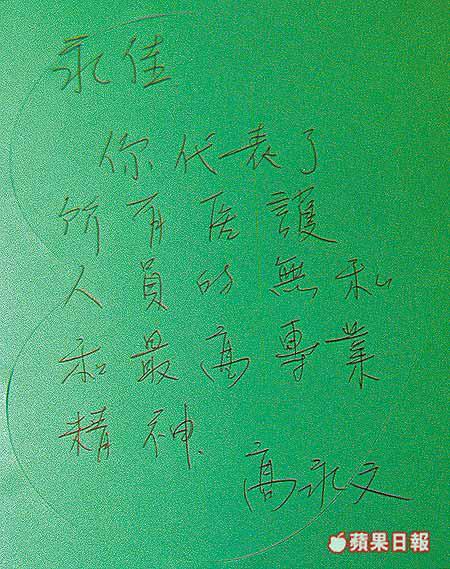 永佳
你代表了
所有医護
人員的無私
和最高專業
精神.
高永文
蘋果日報